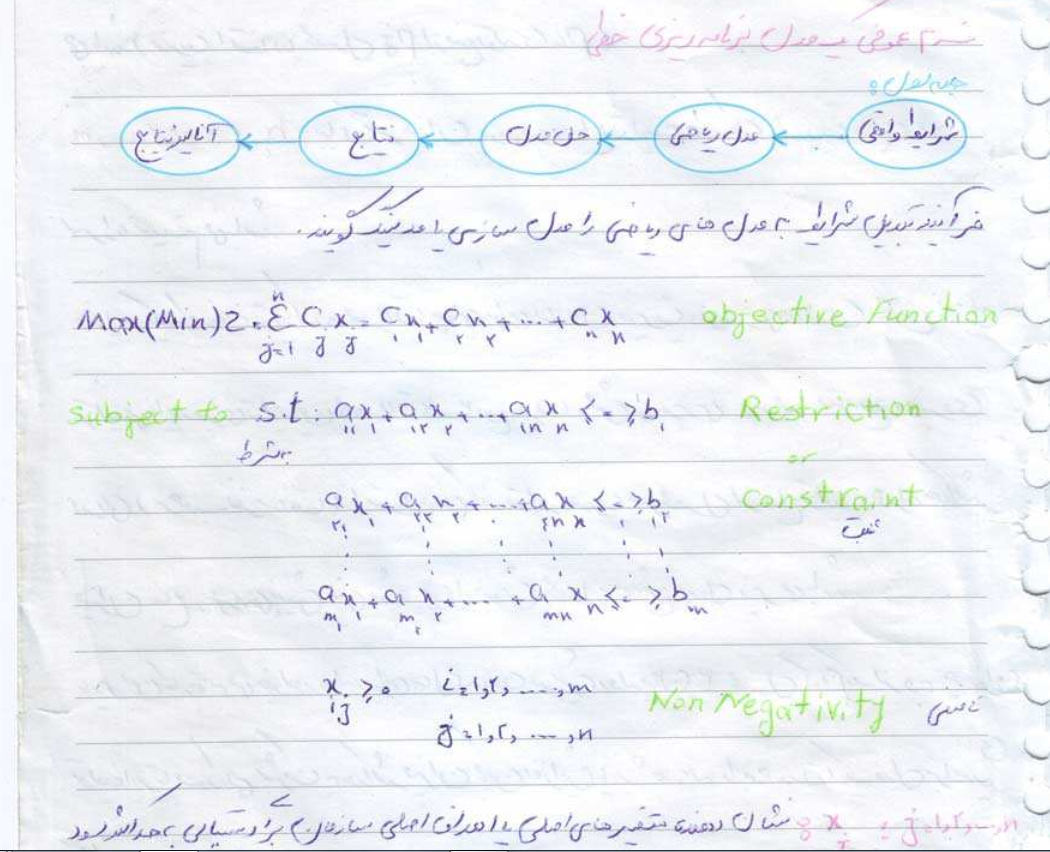 فرم عمومی یک مدل برنامه ریزی خطی
شرایط واقعی ← مدل ریاضی ← حل مدل ← نتایج ← آنالیز نتایج
فرآیند تبدیل شرایط به مدل های ریاضی را مدل سازی یا مدلینگ گویند.
Max(Min) Z = Σ_{j=1}^{n} C_j x_j = C_۱ x_۱ + C_۲ x_۲ + ... + C_n x_n objective Function
Subject to s.t: a_۱۱ x_۱ + a_۱۲ x_۲ + ... + a_۱n x_n ≤ = ≥ b_۱ Restriction
بشرط or
a_۲۱ x_۱ + a_۲۲ x_۲ + ... + a_۲n x_n ≤ = ≥ b_۲ Constraint
a_m۱ x_۱ + a_m۲ x_۲ + ... + a_mn x_n ≤ = ≥ b_m
x_ij ≥ ۰ i=۱,۲, ..., m
j=۱,۲, ..., n Non Negativity نامنفی
x_j : j=۱,۲,...,n : نشان دهنده متغیرهای اصلی یا اهداف اصلی سازمان برای دستیابی به حداکثر سود